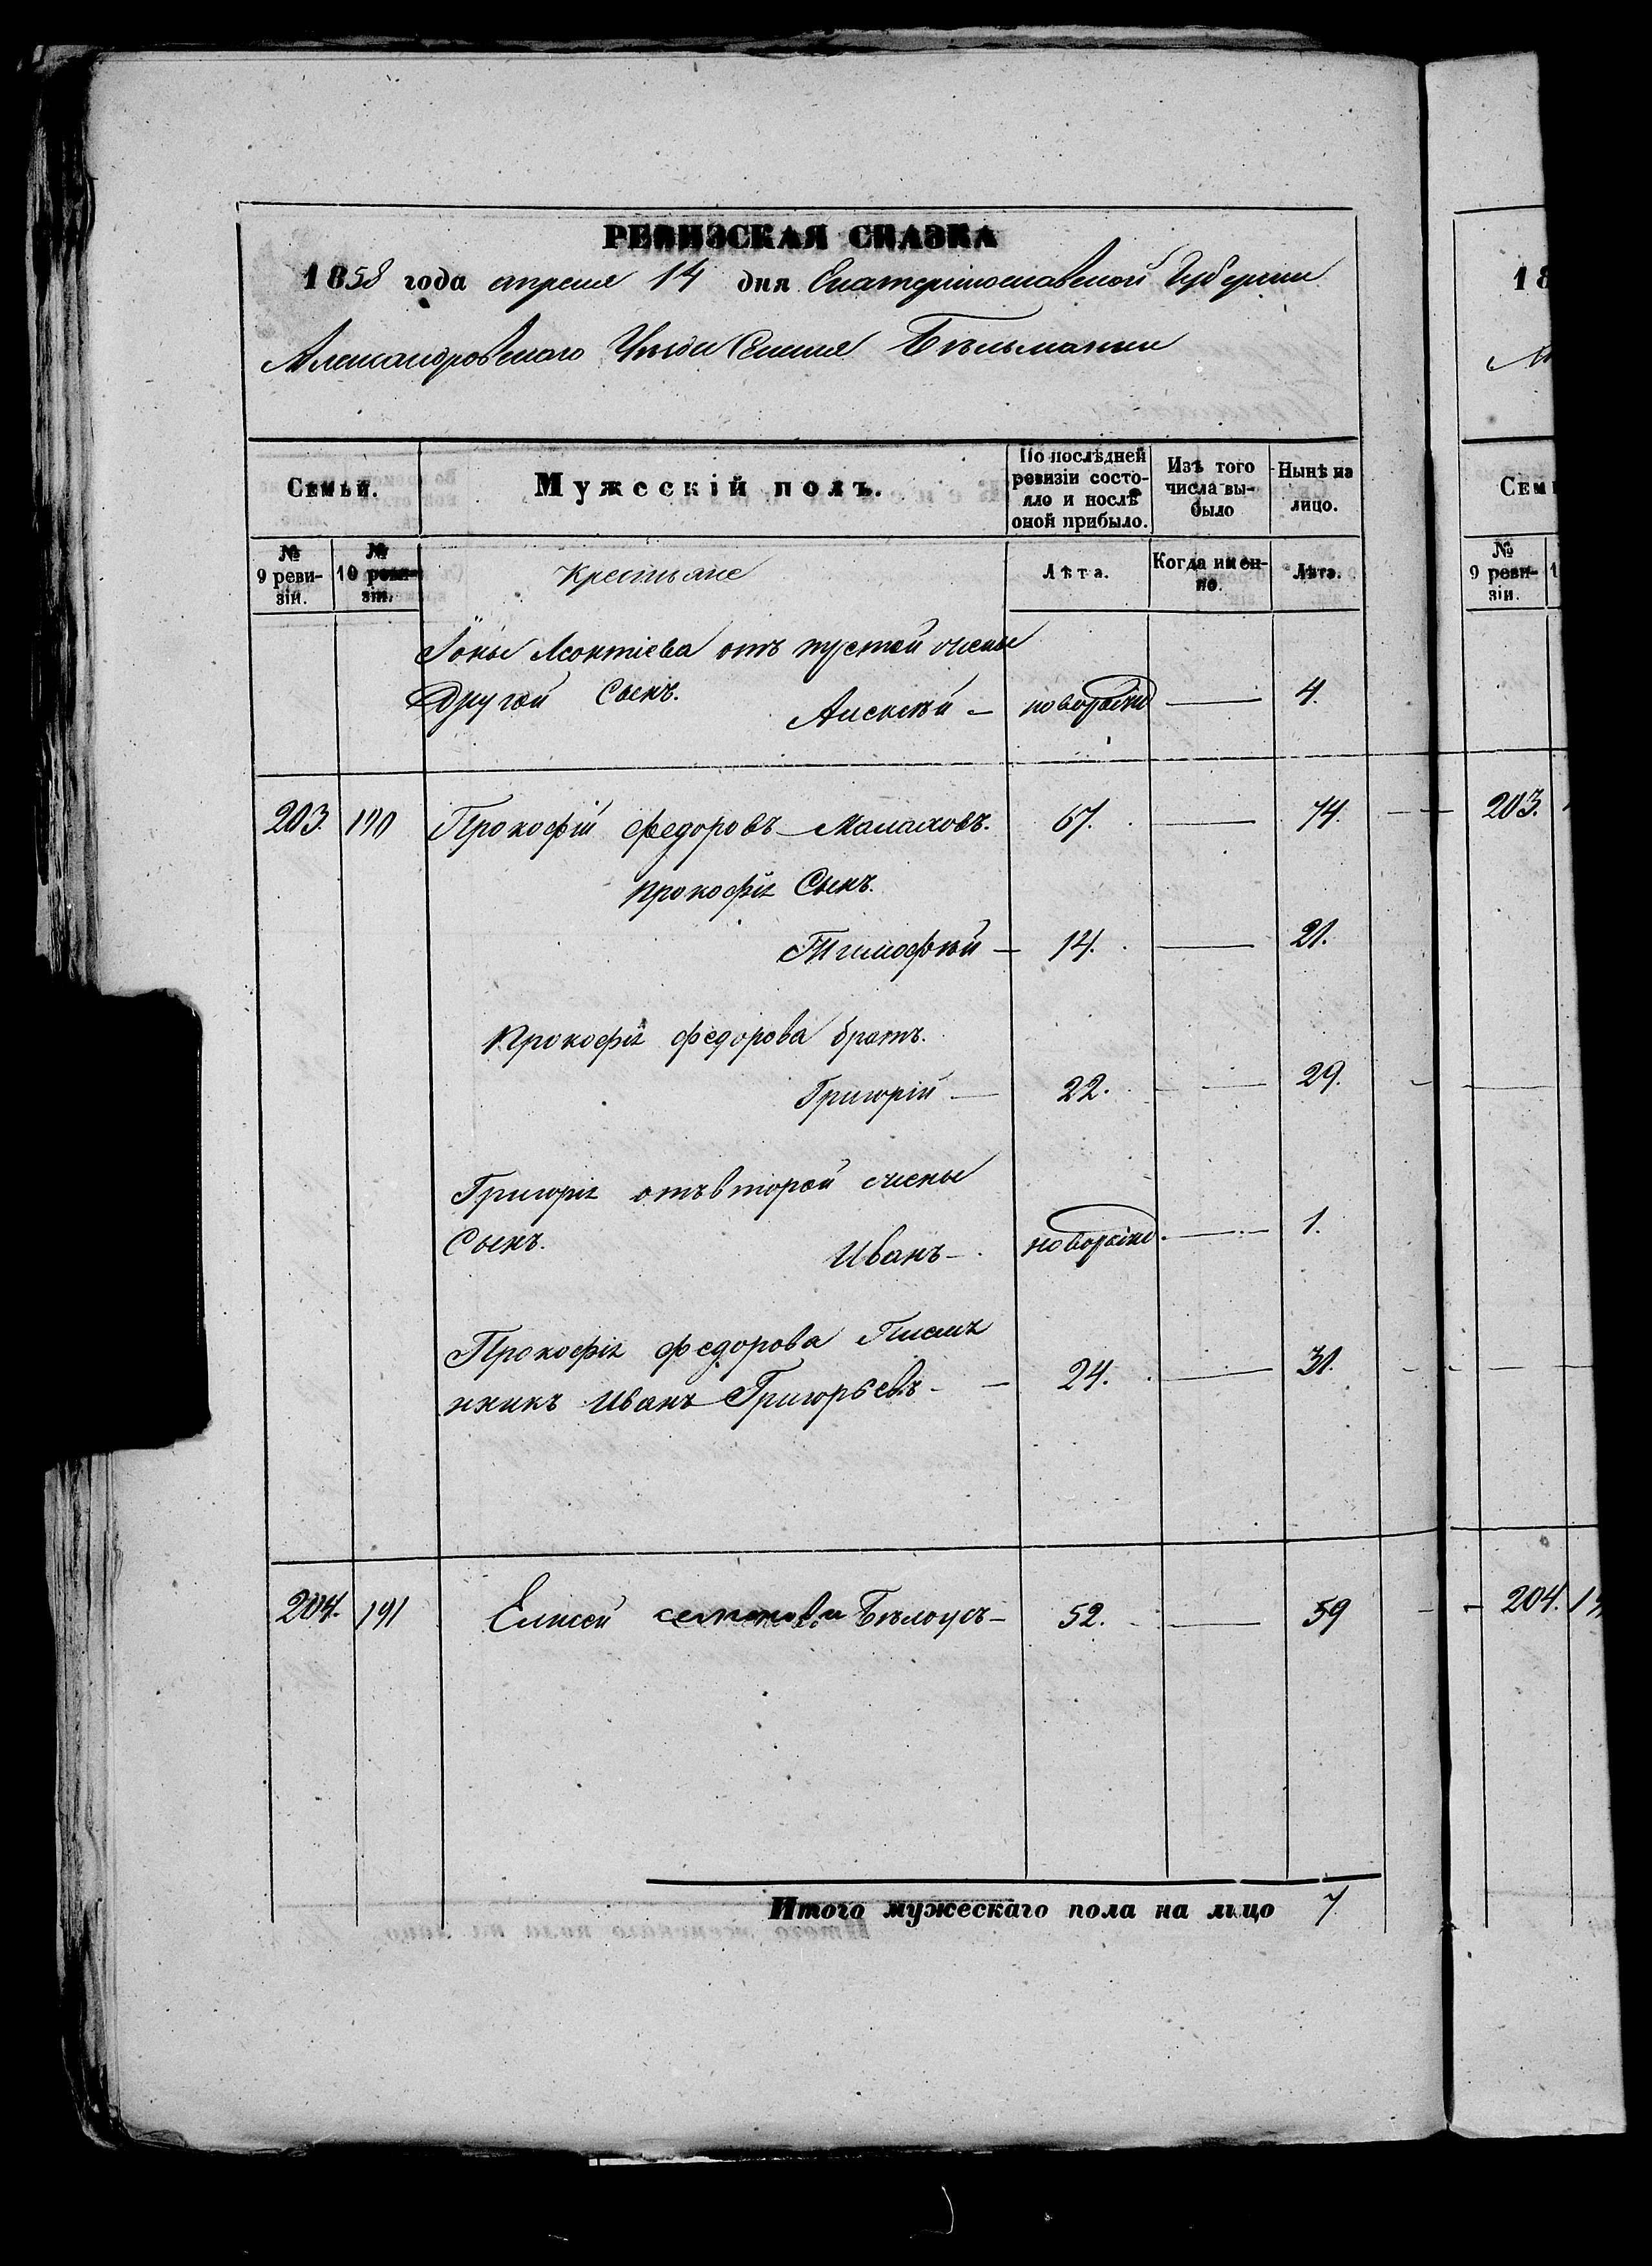 РЕВИЗСКАЯ СКАЗКА
1858 года апреля 14 дня Екатеринославской Губернии
Александровскаго Уѣзда Селенія Бѣльманки
Семьи.
Мужескій полъ.
По послѣдней ревизіи состояло и послѣ оной прибыло.
Изъ того числа выбыло
Нынѣ на лицо.
№ 9 ревизіи.
№ 10 ревизіи.
Крестьяне
Лѣта.
Когда именно.
Лѣта.
Іоны Леонтіева отъ жены
другой Сынъ.
Алексѣй — новорожд — 4.
203. 190 Прокофій Федоровъ Малаховъ. 67. — 74.
Прокофія Сынъ.
Тимофѣй — 14. — 21.
Прокофія Федорова братъ.
Григорій — 22. — 29.
Григорія отъ второй жены
Сынъ.
Иванъ — новорожд. — 1.
Прокофія Федорова Племя
нникъ Иванъ Григорьевъ — 24. — 31.
204. 191 Елисей Бѣлоусъ — 52. — 59
Итого мужескаго пола на лицо 7
18
Сем
№ 9 ревизіи.
203.
204.